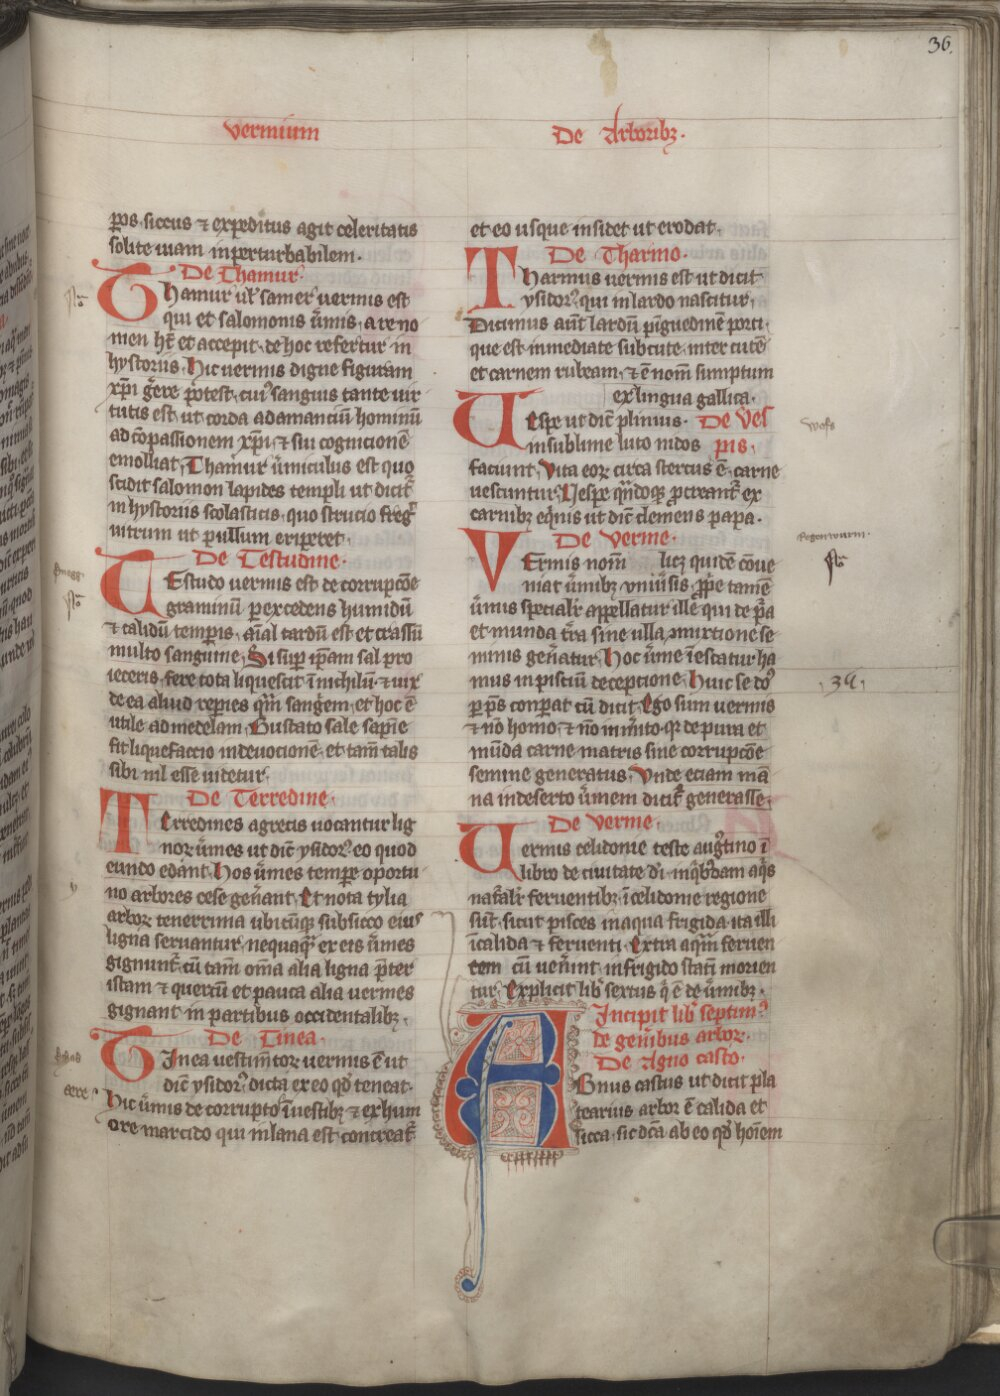 36.
vermium
De Arboribꝫ.
ꝑꝑos siccus ⁊ expeditus agit celeritatis
solite uiam inperturbabilem.
De Thamur.
Thamur ul' samer vermis est
qui et salomonis u̅mis. a re no
men h̅t et accepit. de hoc refertur in
hystoriis. Hic vermis digne figuram
xp̅i gerere potest. cui' sanguis tante uir
tutis est ut corda adamantium hominu̅
ad co̅passionem xp̅i ⁊ sui cognitione̅
emolliat. Thamur u̅miculus est quo
scidit salomon lapides templi ut dicit̅
in hystoriis scolasticis. quo strucio freg'
uitrum ut pullum eriperet.
De Testudine.
Testudo uermis est de corrupco̅e
graminu̅ per excedens humidu̅
⁊ calidu̅ temperis. a̅i̅al tardu̅ est et crassu̅
multo sanguine. Si super ip̅am sal pro
ieceris. fere tota liquescit i̅ nichilu̅ ⁊ uix
de ea aliud repies q̅m sang̅em. et hoc e̅
utile ad medelam. Gustato sale sapi̅e
fit liquefaccio in deuocione̅. et tam̅ talis
sibi nil esse uidetur.
De Terredine.
Terredines agrecis uocantur lig
nor u̅mes ut dic̅t ysidor' eo quod
edendo edant. Hos u̅mes tempe̅ oportu
no arbores cese gen̅ant. Et nota tylia
arbor tenerrima ubicu̅q̅ sub sicco eius
ligna seruantur. nequaq̅ ex eis u̅mes
gignunt̅. cu̅ tam̅ om̅a alia ligna p̅ter
istam ⁊ quercu̅ et pauca alia uermes
gignant in partibus occidentalibꝫ.
De Tinea.
Tinea uestim̅tor uermis e̅ ut
dic̅t ysidor' dicta ex eo q̅d teneat.
Hic u̅mis de corrupto i̅ uestibꝫ ⁊ ex hum
ore marcido qui in lana est concreat̅
et eo usque insidet ut erodat.
De Tharmo.
Tharmus uermis est ut dicit
ysidor' qui in lardo nascitur.
Dicimus aut̅ lardu̅ pi̅guedine̅ porci.
que est inmediate sub cute. inter cute̅
et carnem rubeam. ⁊ e̅ nom̅ sumptum
ex lingua gallica.
De Ves
pis.
Uespe ut dic̅t plinius.
in sublime luto nidos
faciunt. Vita eor circa stercus e̅. carne
uescuntur. Uespe q̅ndoq̅ p̅creant̅ ex
carnibꝫ eq̅nis ut dic̅t clemens papa.
De Verme.
VErmis nom̅ licꝫ quide̅ co̅ue
niat u̅mibꝫ vniu̅sis. p̅p̅e tame̅
u̅mis specialr̅ appellatur ille qui de p̅a
et munda t̅ra sine ulla ꝯmixtione se
minis gen̅atur. Hoc u̅me i̅escatur ha
mus in pisciu̅ decepcione. Huic se do'
ꝑ ꝑ̅s conp̅at cu̅ dicit. Ego sum uermis
⁊ no̅ homo. ⁊ no̅ in m̅ito. q̅r de pura et
mu̅da carne matris sine corrupco̅e
semine generatus. Vnde eciam ma̅
na in deserto u̅mem dicit̅ generasse.
De Verme.
Uermis celidonie teste aug̅tino i̅
libro de ciuitate d̅i. in q̅b̅dam aq̅s
nat̅alr̅ feruentibꝫ i̅ celidonie regione
su̅t. sicut pisces in aqua frigida ita illi
i̅ calida ⁊ feruenti. Extra aq̅m feruen
tem cu̅ uen̅int in frigido stati̅ morien
tur. Explicit lib' sextus q̅ e̅ de u̅mibꝫ.
Incipit lib' septim'
de gen̅ibus arbor.
De Agno casto.
AGnus castus ut dicit pla
tearius arbor e̅ calida et
sicca. sic d̅ca ab eo q̅d hoi̅em